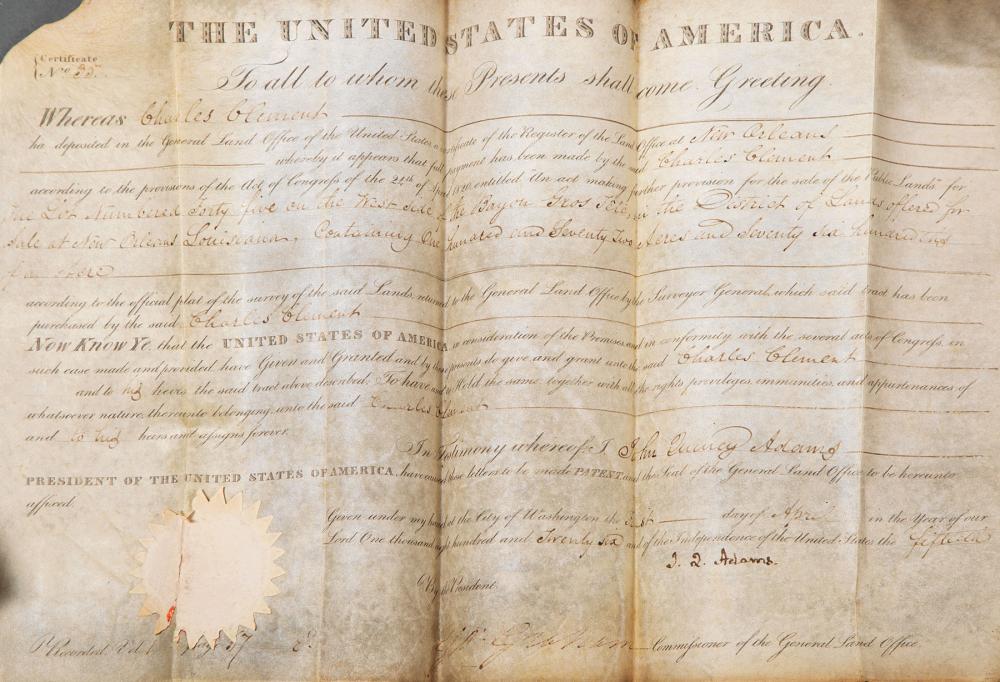 THE UNITED STATES OF AMERICA.
Certificate
No. 35
To all to whom these Presents shall come Greeting.
Whereas Charles Clement
ha deposited in the General Land Office of the United States, a certificate of the Register of the Land Office at New Orleans
whereby it appears that full payment has been made by the said Charles Clement
according to the provisions of the Act of Congress of the 24th of April 1820, entitled An act making further provision for the sale of the Public Lands, for
the Lot Numbered forty five on the West side of the Bayou Gros Tete, in the District of Lands offered for
sale at New Orleans Louisiana, Containing One hundred and Seventy Two Acres and Seventy six hundredths
of an Acre
according to the official plat of the survey of the said Lands, returned to the General Land Office by the Surveyor General, which said tract has been
purchased by the said Charles Clement
Now Know Ye, that the UNITED STATES OF AMERICA, in consideration of the Premises, and in conformity with the several acts of Congress, in
such case made and provided, have Given and Granted, and by these presents do give and grant unto the said Charles Clement
and to his heirs the said tract above described: To have and to Hold the same, together with all the rights privileges, immunities, and appurtenances of
whatsoever nature, thereunto belonging, unto the said Charles Clement
and to his heirs and assigns forever.
In Testimony whereof, I John Quincy Adams
PRESIDENT OF THE UNITED STATES OF AMERICA, have caused these letters to be made PATENT, and the Seal of the General Land Office to be hereunto
affixed.
Given under my hand at the City of Washington the first day of April in the Year of our
Lord One thousand eight hundred and twenty six and of the Independence of the United States the fiftieth
J. Q. Adams.
By the President
Recorded, Vol. Page 37
Geo. Graham Commissioner of the General Land Office.